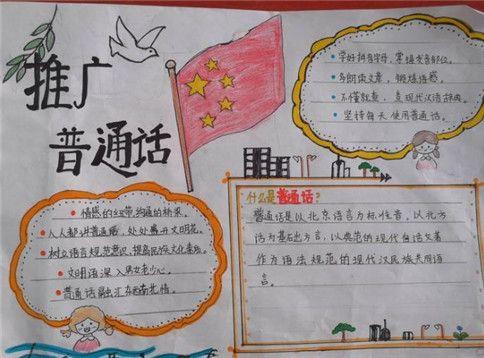 推广
普通话
学好拼音字母，掌握发音部位。
多朗读文章，锻炼语感。
不懂就查，查现代汉语辞典。
坚持每天使用普通话。
情感的纽带，沟通的桥梁。
人人都讲普通话，处处盛开文明花。
树立语言规范意识，提高民族文化素质。
文明语深入男女老少心。
普通话融汇东西南北情。
什么是普通话？
普通话是以北京语言为标准音，以北方
话为基础方言，以典范的现代白话文著
作为语法规范的现代汉民族共同语
言。